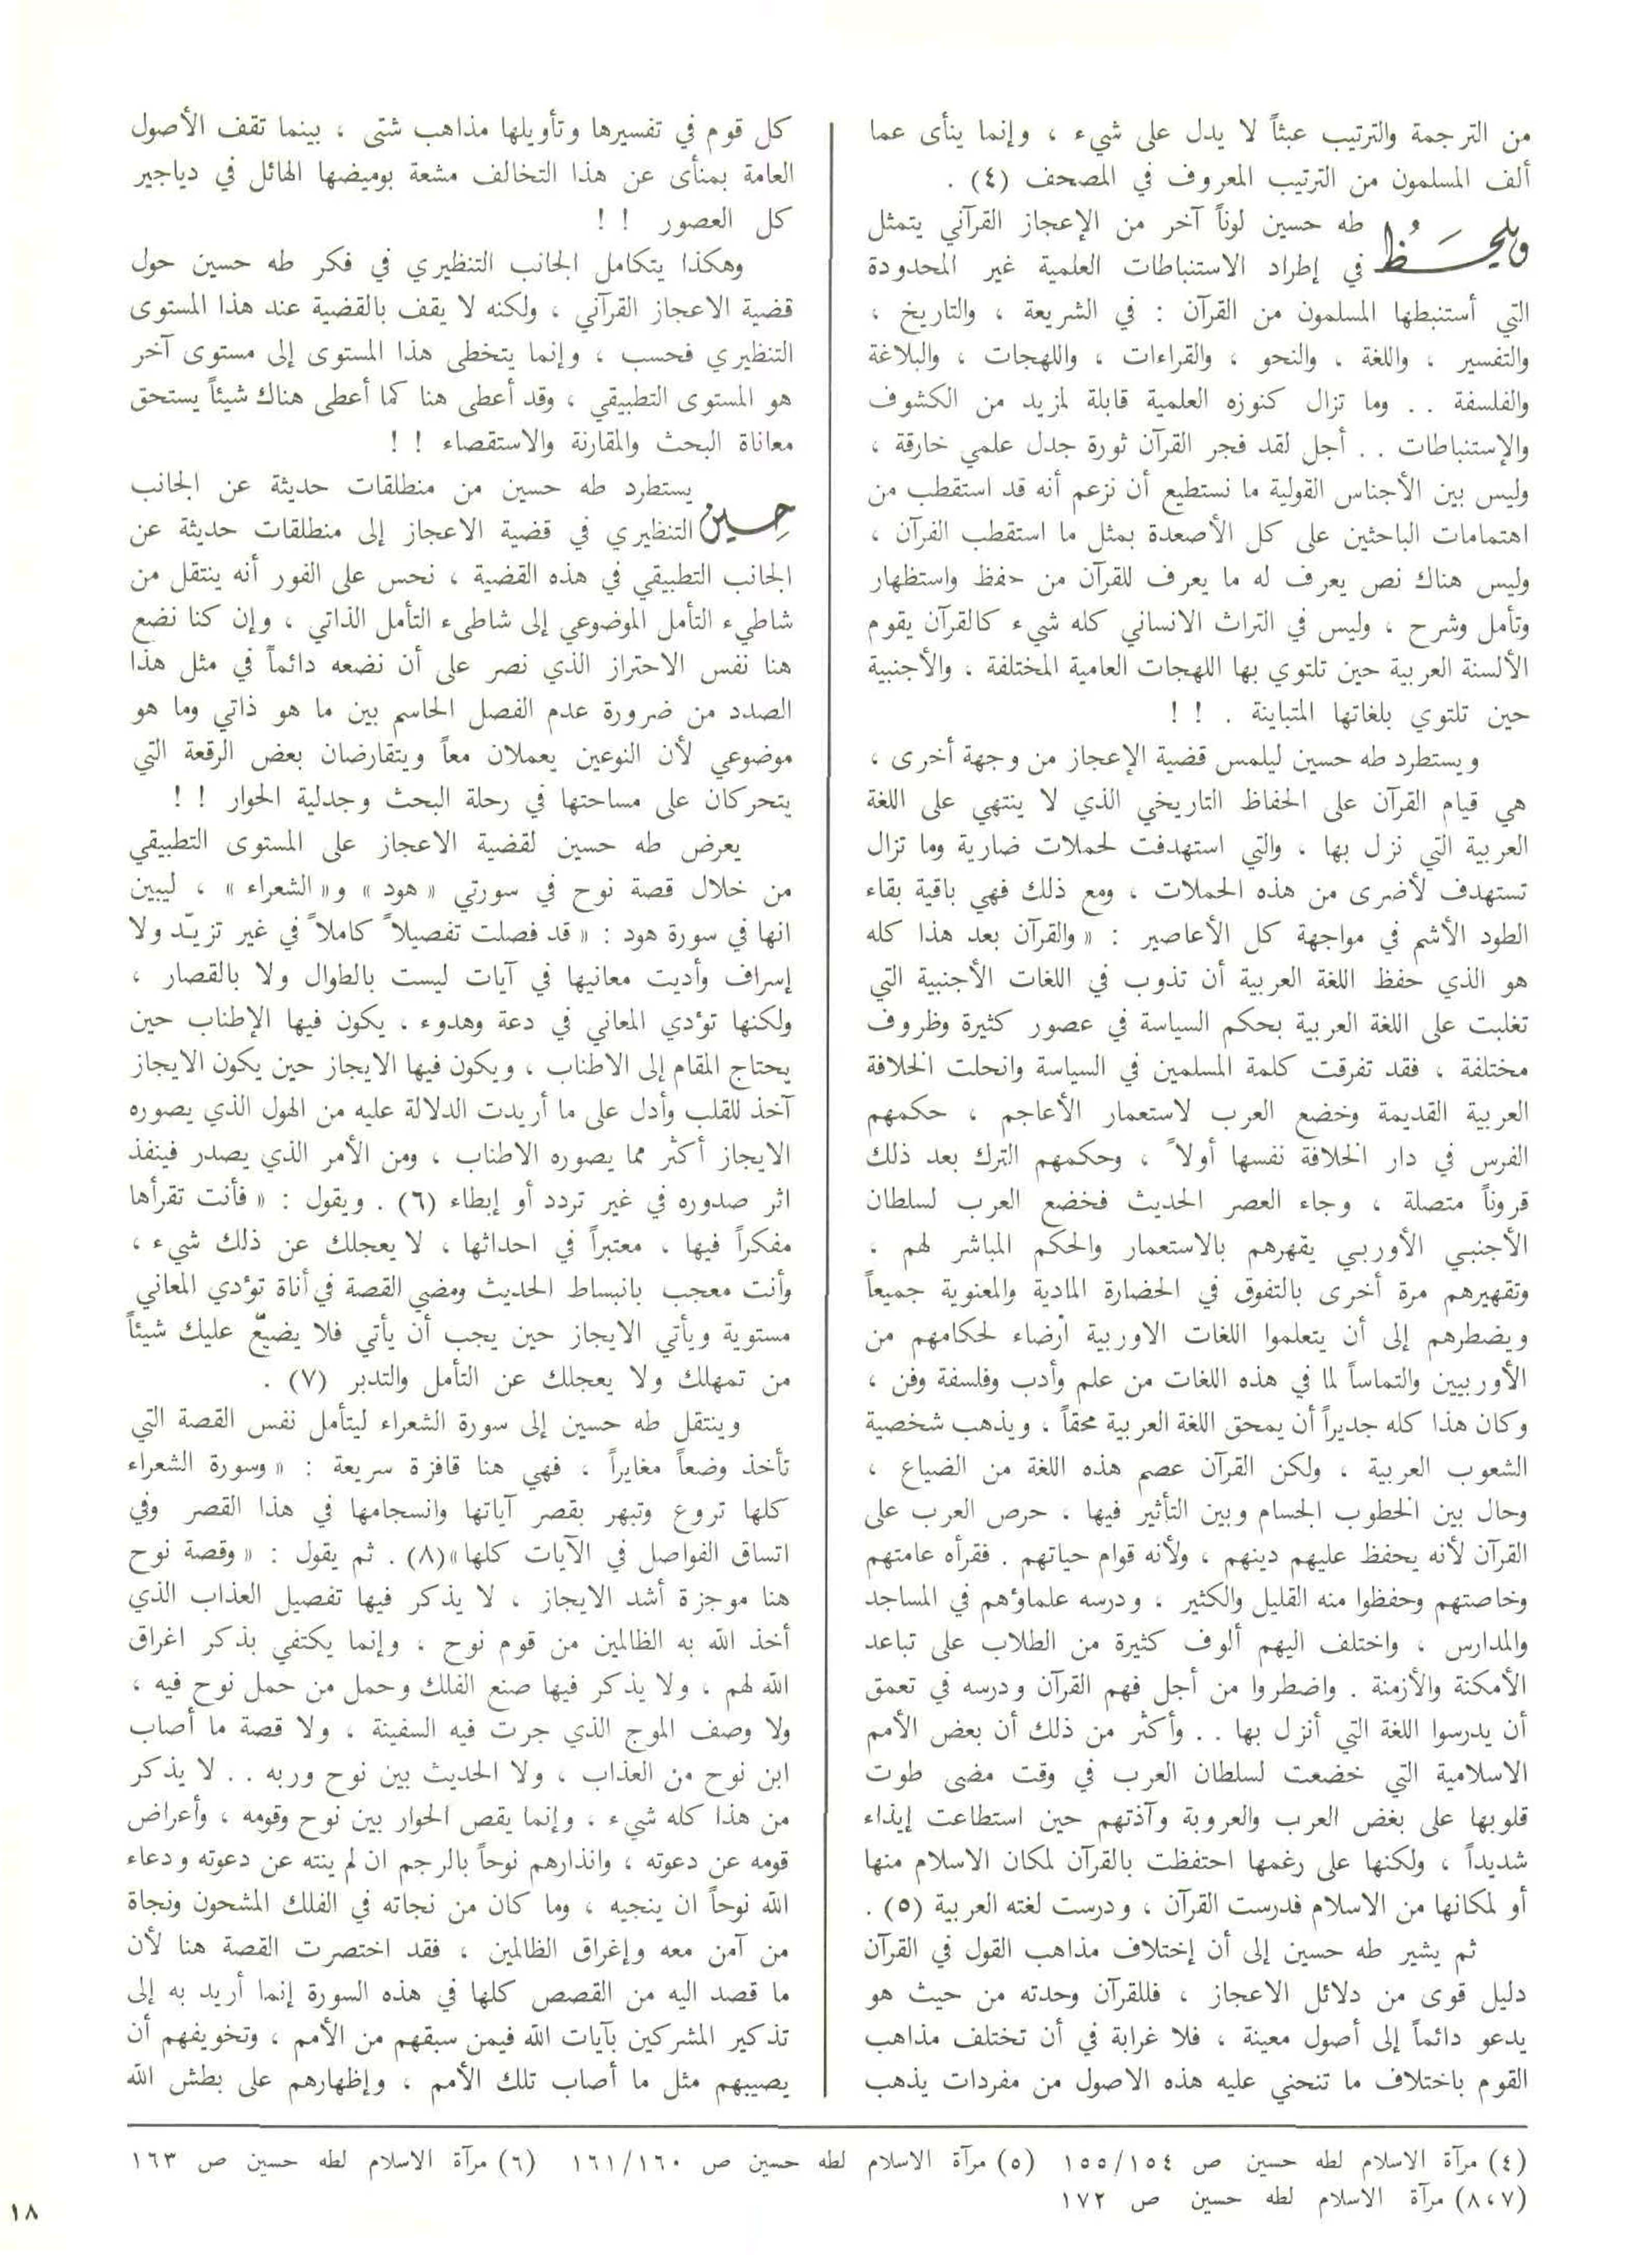 من الترجمة والترتيب عبثاً لا يدل على شيء ، وإنما ينأى عما
ألف المسلمون من الترتيب المعروف في المصحف (٤) .
ويلحَظُ طه حسين لوناً آخر من الإعجاز القرآني يتمثل
في إطراد الاستنباطات العلمية غير المحدودة
التي أستنبطها المسلمون من القرآن : في الشريعة ، والتاريخ ،
والتفسير ، واللغة ، والنحو ، والقراءات ، واللهجات ، والبلاغة
والفلسفة . . وما تزال كنوزه العلمية قابلة لمزيد من الكشوف
والإستنباطات . . أجل لقد فجر القرآن ثورة جدل علمي خارقة ،
وليس بين الأجناس القولية ما نستطيع أن نزعم أنه قد استقطب من
اهتمامات الباحثين على كل الأصعدة بمثل ما استقطب القرآن ،
وليس هناك نص يعرف له ما يعرف للقرآن من حفظ واستظهار
وتأمل وشرح ، وليس في التراث الانساني كله شيء كالقرآن يقوم
الألسنة العربية حين تلتوي بها اللهجات العامية المختلفة ، والأجنبية
حين تلتوي بلغاتها المتباينة . ! !
ويستطرد طه حسين ليلمس قضية الإعجاز من وجهة أخرى ،
هي قيام القرآن على الحفاظ التاريخي الذي لا ينتهي على اللغة
العربية التي نزل بها ، والتي استهدفت لحملات ضارية وما تزال
تستهدف لأضرى من هذه الحملات ، ومع ذلك فهي باقية بقاء
الطود الأشم في مواجهة كل الأعاصير : « والقرآن بعد هذا كله
هو الذي حفظ اللغة العربية أن تذوب في اللغات الأجنبية التي
تغلبت على اللغة العربية بحكم السياسة في عصور كثيرة وظروف
مختلفة ، فقد تفرقت كلمة المسلمين في السياسة وانحلت الخلافة
العربية القديمة وخضع العرب لاستعمار الأعاجم ، حكمهم
الفرس في دار الخلافة نفسها أولاً ، وحكمهم الترك بعد ذلك
قروناً متصلة ، وجاء العصر الحديث فخضع العرب لسلطان
الأجنبي الأوربي يقهرهم بالاستعمار والحكم المباشر لهم ،
وتقهيرهم مرة أخرى بالتفوق في الحضارة المادية والمعنوية جميعاً
ويضطرهم إلى أن يتعلموا اللغات الاوربية أرضاء لحكامهم من
الأوربيين والتماساً لما في هذه اللغات من علم وأدب وفلسفة وفن ،
وكان هذا كله جديراً أن يمحق اللغة العربية محقاً ، ويذهب شخصية
الشعوب العربية ، ولكن القرآن عصم هذه اللغة من الضياع ،
وحال بين الخطوب الجسام وبين التأثير فيها ، حرص العرب على
القرآن لأنه يحفظ عليهم دينهم ، ولأنه قوام حياتهم . فقرأه عامتهم
وخاصتهم وحفظوا منه القليل والكثير ، ودرسه علماؤهم في المساجد
والمدارس ، واختلف اليهم ألوف كثيرة من الطلاب على تباعد
الأمكنة والأزمنة . واضطروا من أجل فهم القرآن ودرسه في تعمق
أن يدرسوا اللغة التي أنزل بها . . وأكثر من ذلك أن بعض الأمم
الاسلامية التي خضعت لسلطان العرب في وقت مضى طوت
قلوبها على بغض العرب والعروبة وآذتهم حين استطاعت إيذاء
شديداً ، ولكنها على رغمها احتفظت بالقرآن لمكان الاسلام منها
أو لمكانها من الاسلام فدرست القرآن ، ودرست لغته العربية (٥) .
ثم يشير طه حسين إلى أن إختلاف مذاهب القول في القرآن
دليل قوى من دلائل الاعجاز ، فللقرآن وحدته من حيث هو
يدعو دائماً إلى أصول معينة ، فلا غرابة في أن تختلف مذاهب
القوم باختلاف ما تنحني عليه هذه الاصول من مفردات يذهب
كل قوم في تفسيرها وتأويلها مذاهب شتى ، بينما تقف الأصول
العامة بمنأى عن هذا التخالف مشعة بوميضها الهائل في دياجير
كل العصور ! !
وهكذا يتكامل الجانب التنظيري في فكر طه حسين حول
قضية الاعجاز القرآني ، ولكنه لا يقف بالقضية عند هذا المستوى
التنظيري فحسب ، وإنما يتخطى هذا المستوى إلى مستوى آخر
هو المستوى التطبيقي ، وقد أعطى هنا كما أعطى هناك شيئاً يستحق
معاناة البحث والمقارنة والاستقصاء ! !
حِين يستطرد طه حسين من منطلقات حديثة عن الجانب
التنظيري في قضية الاعجاز إلى منطلقات حديثة عن
الجانب التطبيقي في هذه القضية ، نحس على الفور أنه ينتقل من
شاطيء التأمل الموضوعي إلى شاطىء التأمل الذاتي ، وإن كنا نضع
هنا نفس الاحتراز الذي نصر على أن نضعه دائماً في مثل هذا
الصدد من ضرورة عدم الفصل الحاسم بين ما هو ذاتي وما هو
موضوعي لأن النوعين يعملان معاً ويتقارضان بعض الرقعة التي
يتحركان على مساحتها في رحلة البحث وجدلية الحوار ! !
يعرض طه حسين لقضية الاعجاز على المستوى التطبيقي
من خلال قصة نوح في سورتي « هود » و« الشعراء » ، ليبين
انها في سورة هود : « قد فصلت تفصيلاً كاملاً في غير تزيّد ولا
إسراف وأديت معانيها في آيات ليست بالطوال ولا بالقصار ،
ولكنها تؤدي المعاني في دعة وهدوء ، يكون فيها الإطناب حين
يحتاج المقام إلى الاطناب ، ويكون فيها الايجاز حين يكون الايجاز
آخذ للقلب وأدل على ما أريدت الدلالة عليه من الهول الذي يصوره
الايجاز أكثر مما يصوره الاطناب ، ومن الأمر الذي يصدر فينفذ
اثر صدوره في غير تردد أو إبطاء (٦) . ويقول : « فأنت تقرأها
مفكراً فيها ، معتبراً في احداثها ، لا يعجلك عن ذلك شيء ،
وأنت معجب بانبساط الحديث ومضي القصة في أناة تؤدي المعاني
مستوية ويأتي الايجاز حين يجب أن يأتي فلا يضيّع عليك شيئاً
من تمهلك ولا يعجلك عن التأمل والتدبر (٧) .
وينتقل طه حسين إلى سورة الشعراء ليتأمل نفس القصة التي
تأخذ وضعاً مغايراً ، فهي هنا قافزة سريعة : « وسورة الشعراء
كلها تروع وتبهر بقصر آياتها وانسجامها في هذا القصر وفي
اتساق الفواصل في الآيات كلها»(٨) . ثم يقول : « وقصة نوح
هنا موجزة أشد الايجاز ، لا يذكر فيها تفصيل العذاب الذي
أخذ الله به الظالمين من قوم نوح ، وإنما يكتفي بذكر اغراق
الله لهم ، ولا يذكر فيها صنع الفلك وحمل من حمل نوح فيه ،
ولا وصف الموج الذي جرت فيه السفينة ، ولا قصة ما أصاب
ابن نوح من العذاب ، ولا الحديث بين نوح وربه . . لا يذكر
من هذا كله شيء ، وإنما يقص الحوار بين نوح وقومه ، وأعراض
قومه عن دعوته ، وانذارهم نوحاً بالرجم ان لم ينته عن دعوته ودعاء
الله نوحاً ان ينجيه ، وما كان من نجاته في الفلك المشحون ونجاة
من آمن معه وإغراق الظالمين ، فقد اختصرت القصة هنا لأن
ما قصد اليه من القصص كلها في هذه السورة إنما أريد به إلى
تذكير المشركين بآيات الله فيمن سبقهم من الأمم ، وتخويفهم أن
يصيبهم مثل ما أصاب تلك الأمم ، وإظهارهم على بطش الله
(٤) مرآة الاسلام لطه حسين ص ١٥٥/١٥٤ (٥) مرآة الاسلام لطه حسين ص ١٦١/١٦٠ (٦) مرآة الاسلام لطه حسين ص ١٦٣
(٨،٧) مرآة الاسلام لطه حسين ص ١٧٢
١٨